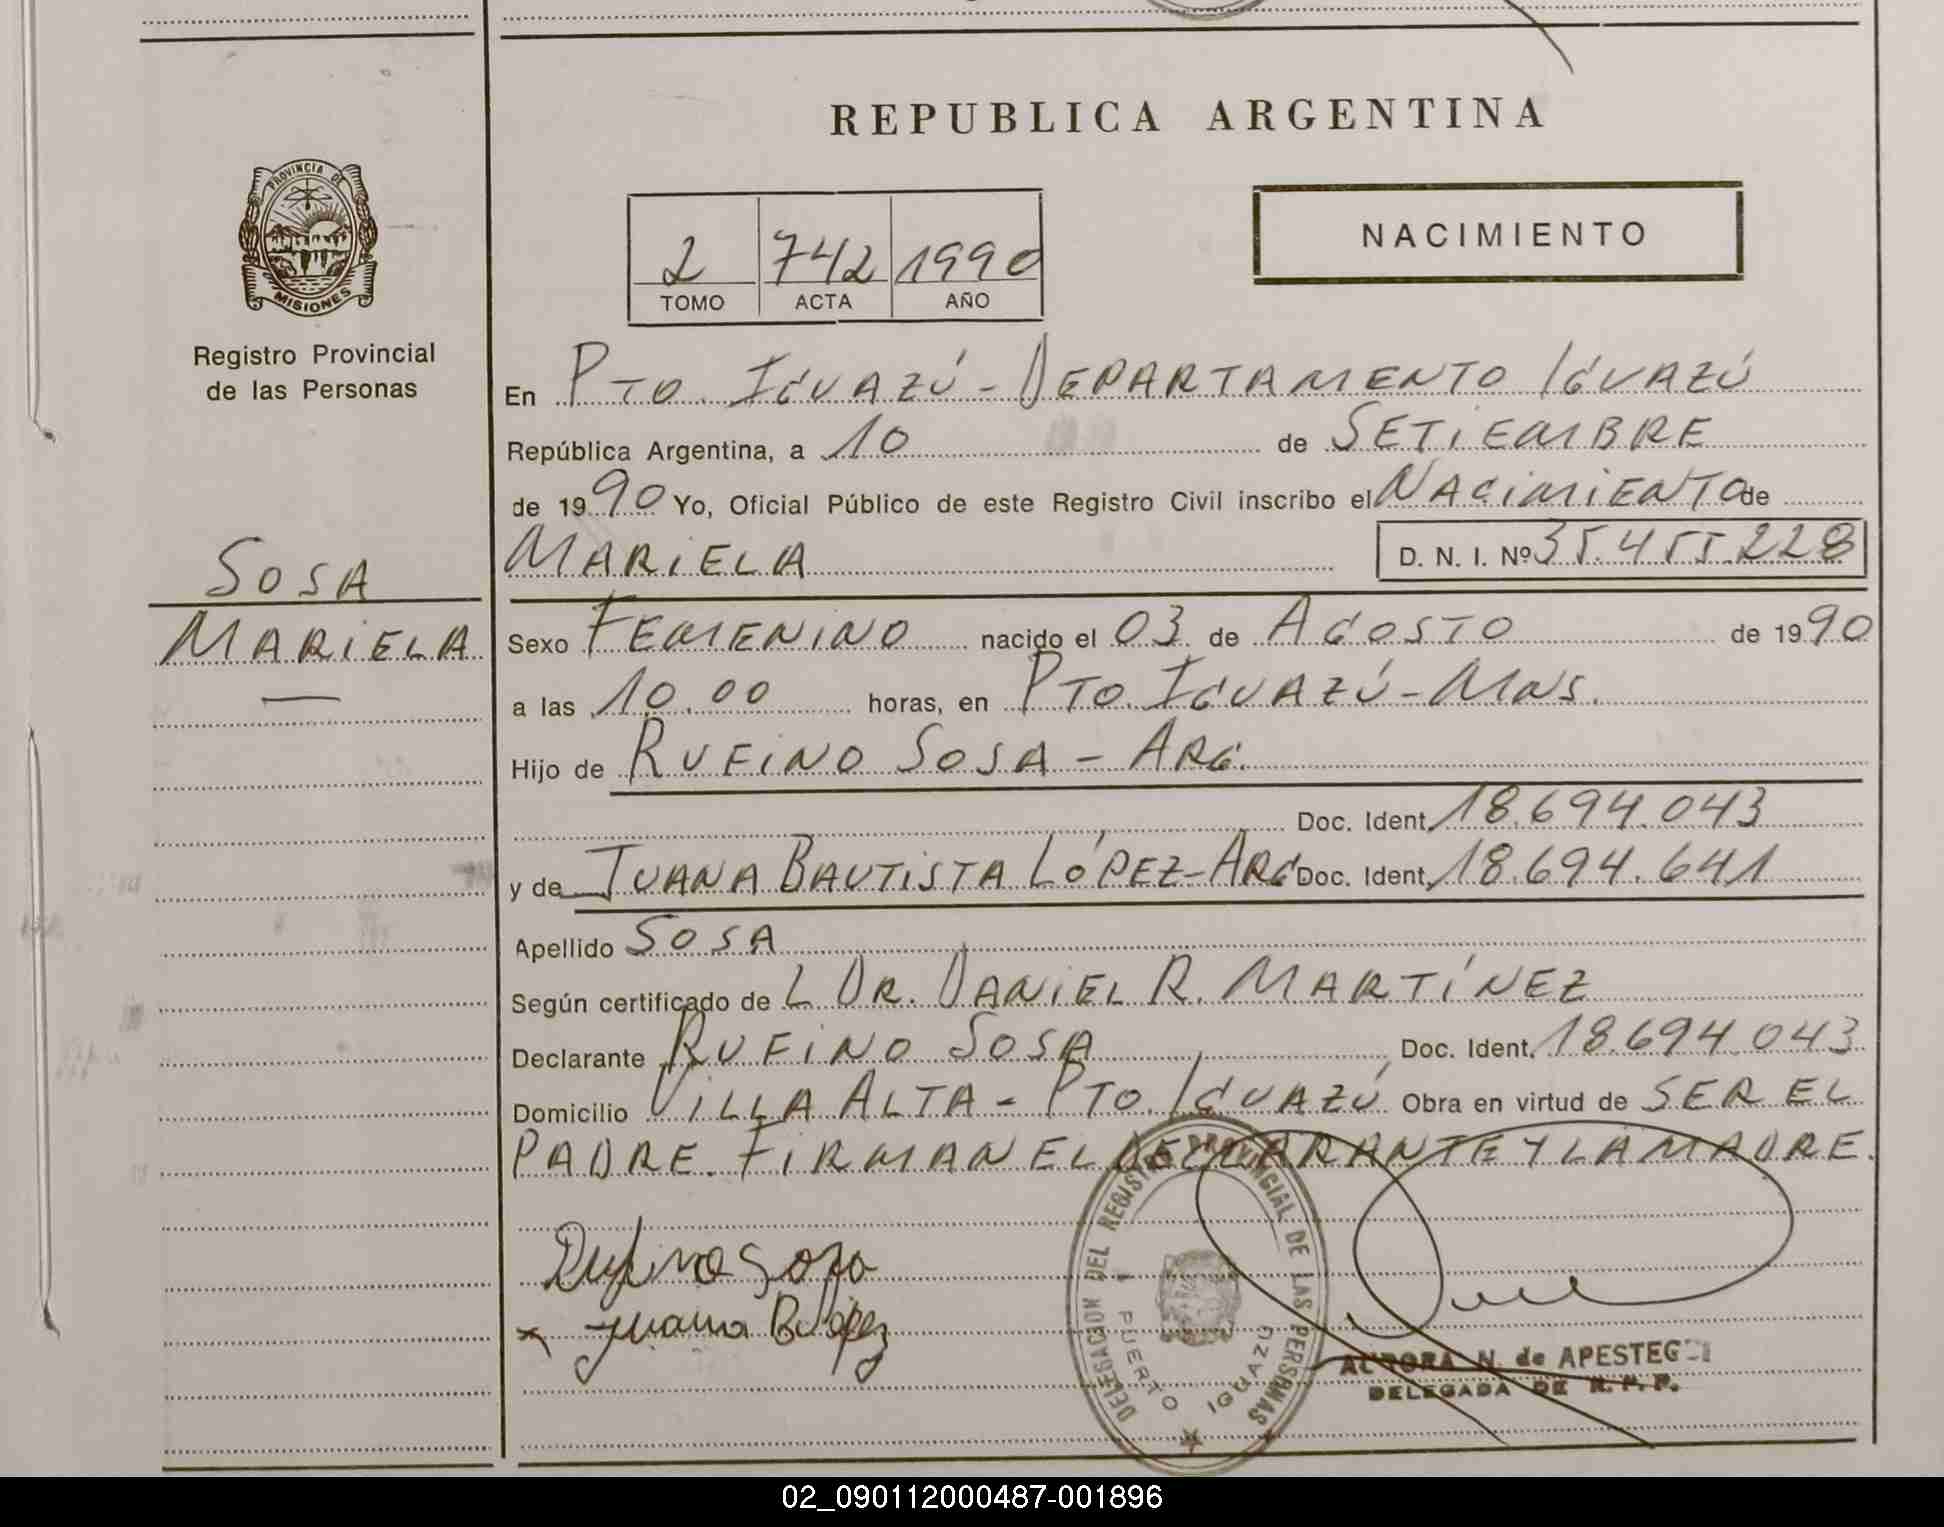 REPUBLICA ARGENTINA
PROVINCIA DE
MISIONES
Registro Provincial
de las Personas
2 742 1990
TOMO ACTA AÑO
NACIMIENTO
En PTO. IGUAZÚ - DEPARTAMENTO IGUAZÚ
República Argentina, a 10 de SETIEMBRE
de 1990 Yo, Oficial Público de este Registro Civil inscribo el NACIMIENTO de
MARIELA D. N. I. Nº 35.455.228
SOSA
MARIELA
Sexo FEMENINO nacido el 03 de AGOSTO de 1990
a las 10.00 horas, en PTO. IGUAZÚ - MNS.
Hijo de RUFINO SOSA - ARG.
Doc. Ident. 18.694.043
y de JUANA BAUTISTA LÓPEZ - ARG Doc. Ident. 18.694.641
Apellido SOSA
Según certificado de L DR. DANIEL R. MARTÍNEZ
Declarante RUFINO SOSA Doc. Ident. 18.694.043
Domicilio VILLA ALTA - PTO. IGUAZÚ Obra en virtud de SER EL
PADRE. FIRMAN EL DECLARANTE Y LA MADRE.
Rufino Sosa
x Juana B López
DELEGACION DEL REGISTRO PROVINCIAL DE LAS PERSONAS
PUERTO IGUAZU
AURORA N. de
DELEGADA DE R. P. P.
02_090112000487-001896